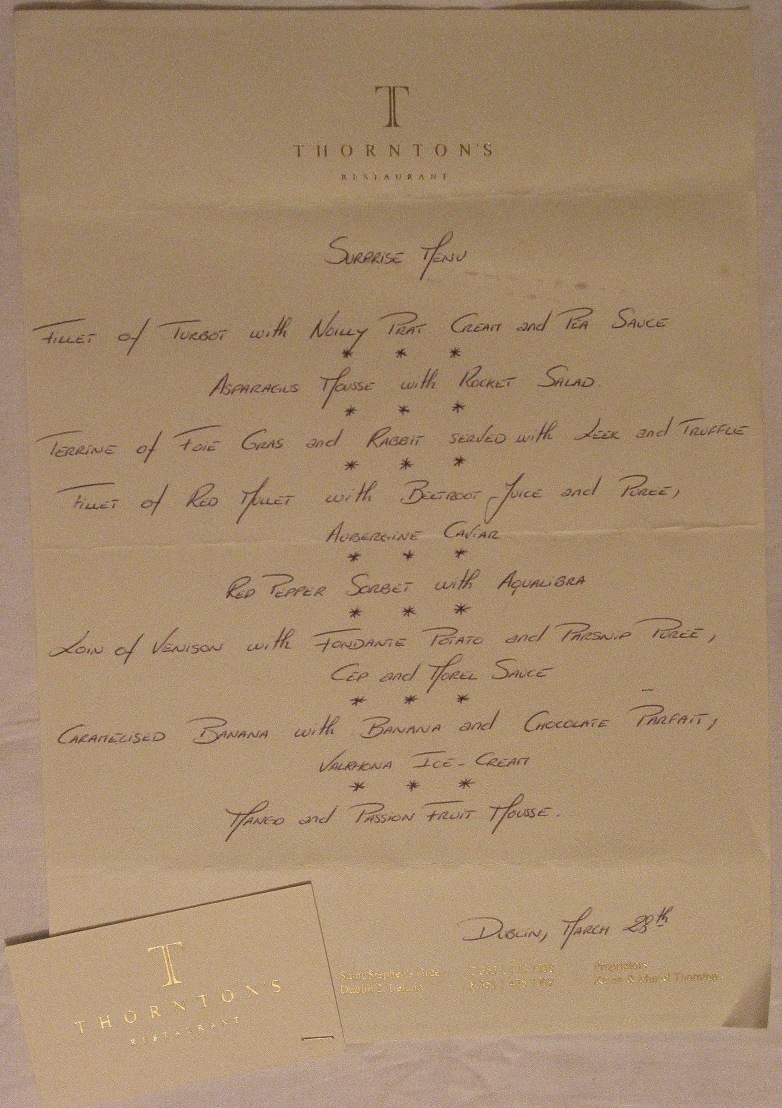 T
THORNTON'S
RESTAURANT
SURPRISE MENU
FILLET of TURBOT with NOILLY PRAT CREAM and PEA SAUCE
* * *
ASPARAGUS MOUSSE with ROCKET SALAD.
* * *
TERRINE of FOIE GRAS and RABBIT SERVED with LEEK and TRUFFLE
* * *
FILLET of RED MULLET with BEETROOT JUICE and PUREE,
AUBERGINE CAVIAR
* * *
RED PEPPER SORBET with AQUALIBRA
* * *
LOIN of VENISON with FONDANTE POTATO and PARSNIP PUREE,
CEP and MOREL SAUCE
* * *
CARAMELISED BANANA with BANANA and CHOCOLATE PARFAIT,
VALRHONA ICE-CREAM
* * *
MANGO and PASSION FRUIT MOUSSE.
DUBLIN, MARCH 28th
Saint Stephen's Green
Dublin 2, Ireland
Proprietors
Thornton
T
THORNTON'S
RESTAURANT